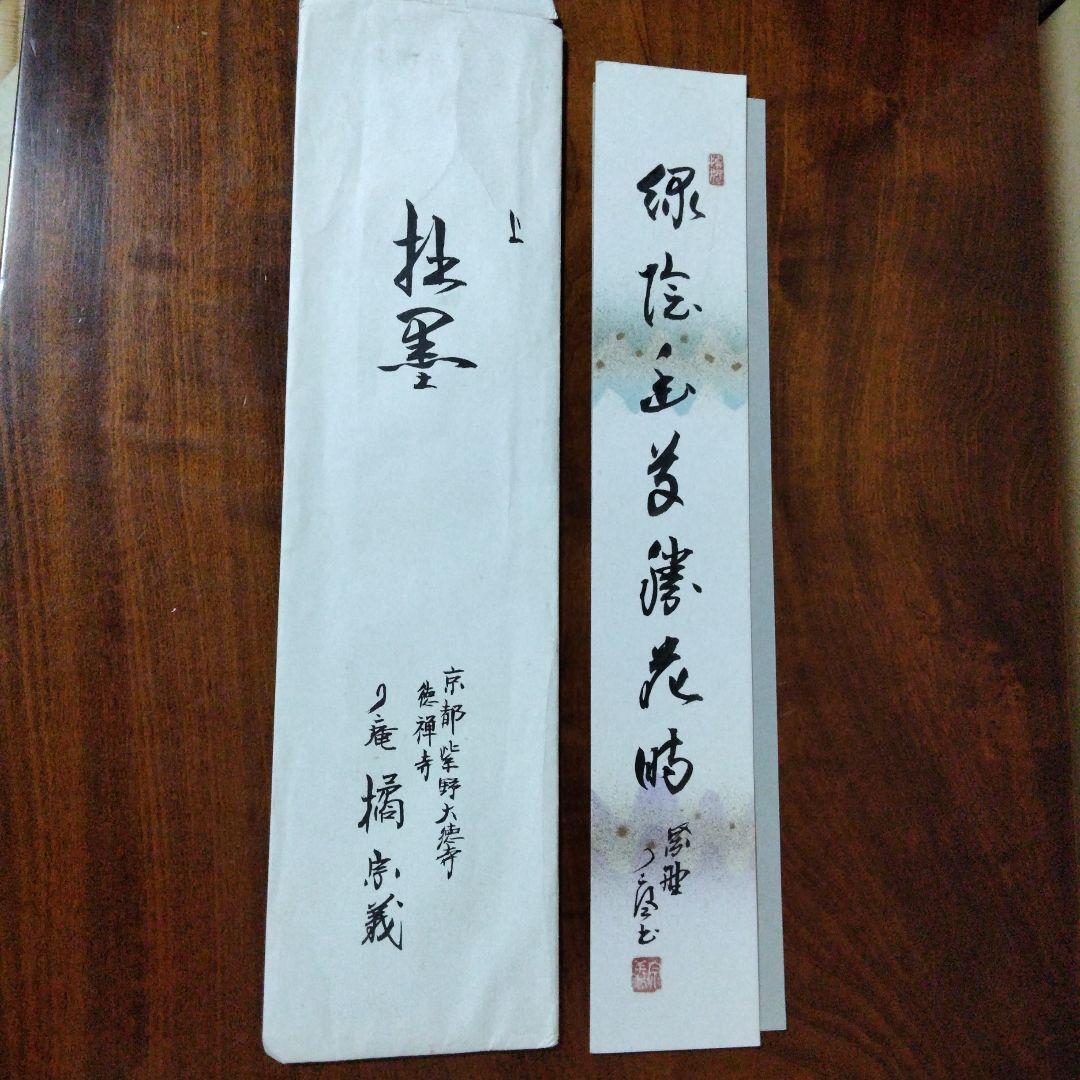 上
拙墨
京都紫野大徳寺
徳禅寺
了庵 橘宗義
緑陰幽草勝花時
紫野
了庵書